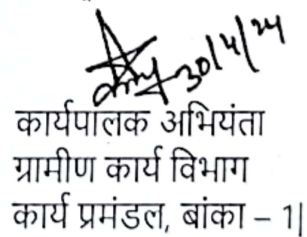 30/4/24
कार्यपालक अभियंता
ग्रामीण कार्य विभाग
कार्य प्रमंडल, बांका – 1|